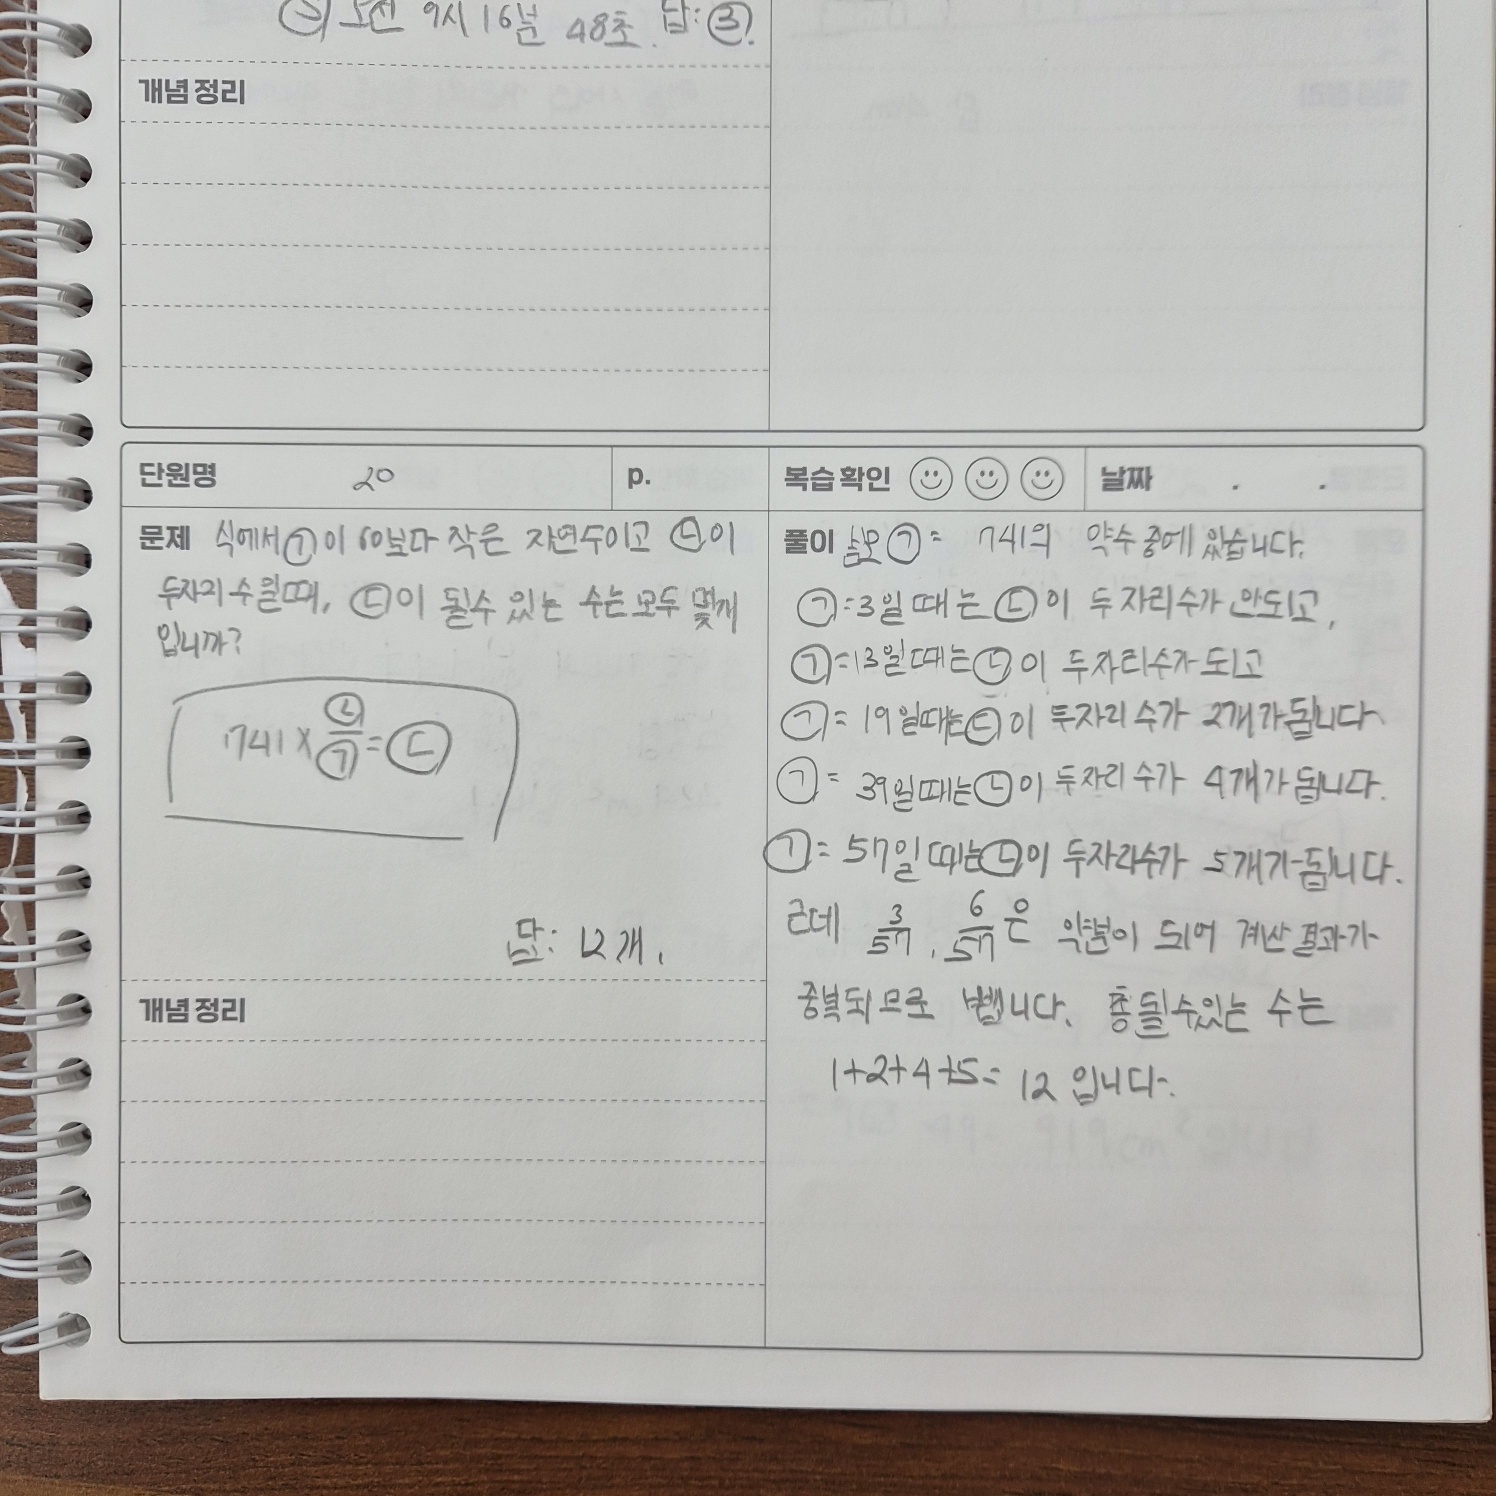 ③ 오전 9시 16분 48초. 답: ③.
개념 정리
단원명 20 p. 복습 확인 날짜 . .
문제 식에서 ㉠이 60보다 작은 자연수이고 ㉢이
두자리 수일때, ㉢이 될수 있는 수는 모두 몇개
입니까?
741 × ㉡/㉠ = ㉢
답: 12개.
개념 정리
풀이 분모 ㉠ = 741의 약수 중에 있습니다.
㉠=3일 때는 ㉢이 두 자리수가 안되고,
㉠=13일때는 ㉢이 두자리수가 되고
㉠= 19일때는 ㉢이 두자리 수가 2개가 됩니다
㉠= 39일때는 ㉢이 두자리 수가 4개가 됩니다.
㉠= 57일 때는 ㉢이 두자리수가 5개가 됩니다.
근데 3/57, 6/57은 약분이 되어 계산 결과가
중복되므로 뺍니다. 총 될수있는 수는
1+2+4+5= 12 입니다.